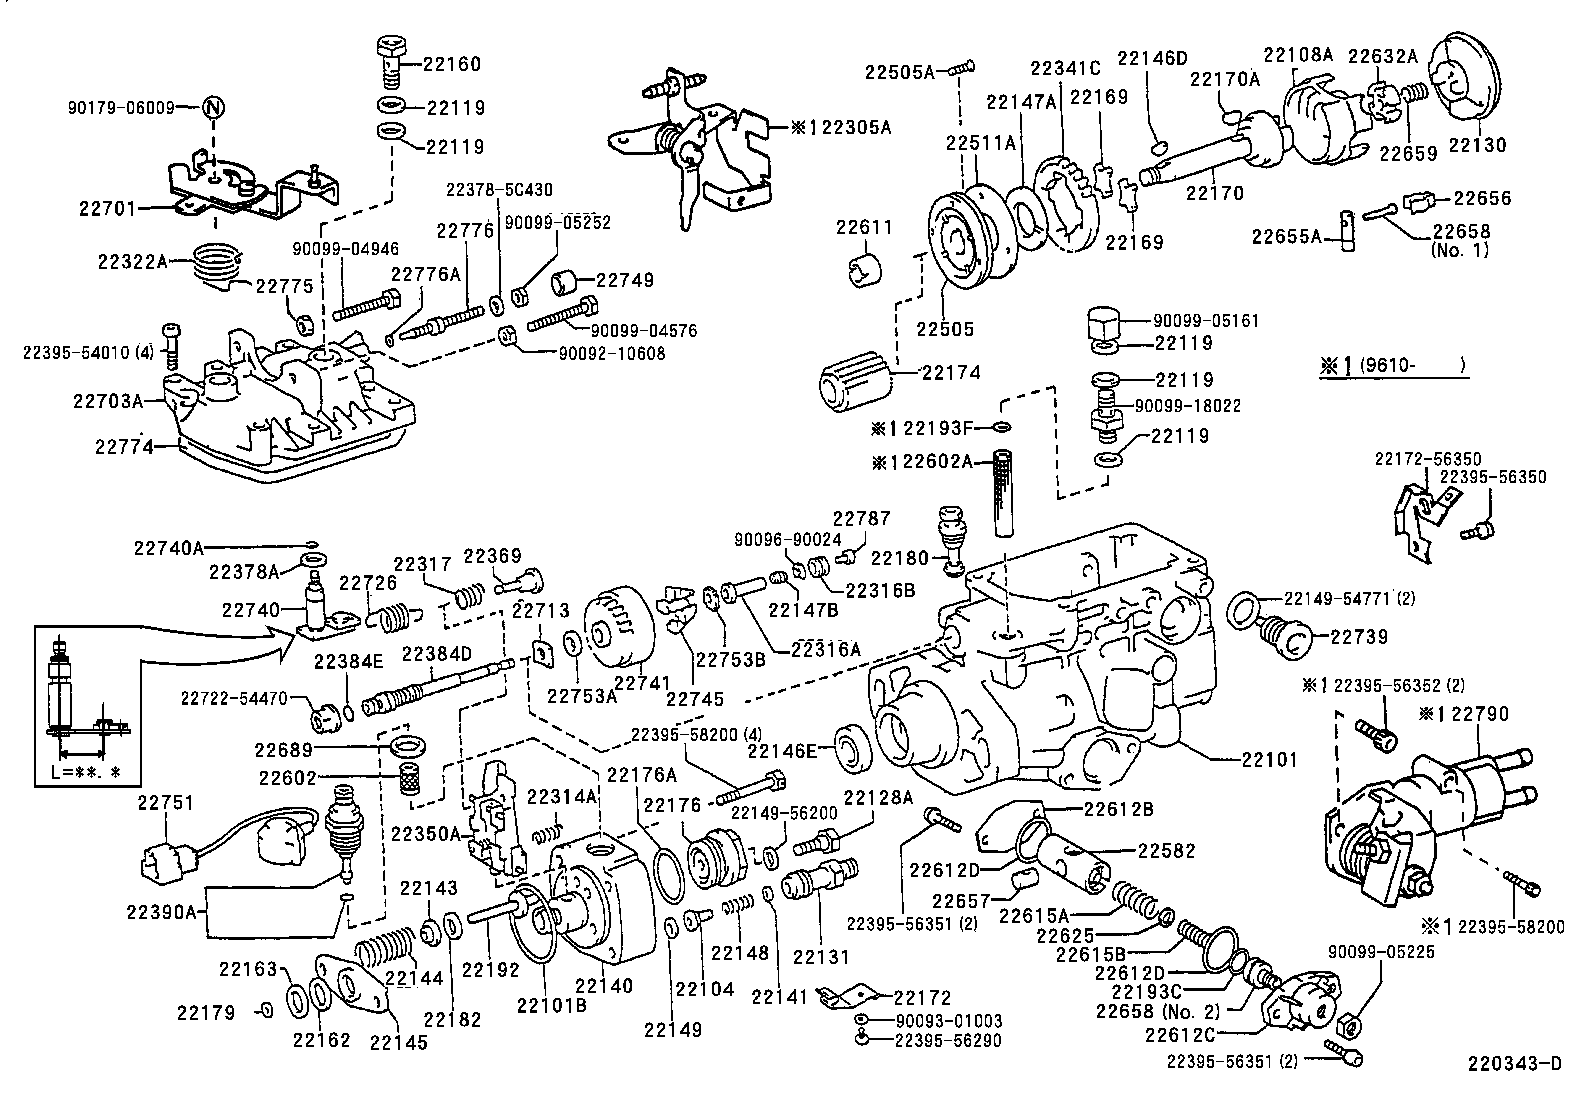 22160
90179-06009
N
22119
22119
22701
22378-5C430
90099-05252
22776
90099-04946
22322A
22776A
22775
22749
90099-04576
22395-54010 (4)
90092-10608
22703A
22774
※122305A
22505A
22341C
22146D
22108A
22632A
22170A
22147A
22169
22511A
22659
22130
22170
22656
22611
22169
22655A
22658
(No. 1)
22505
90099-05161
22119
22174
22119
※1 (9610-      )
90099-18022
※122193F
22119
※122602A
22172-56350
22395-56350
22740A
22378A
22317
22369
22787
90096-90024
22180
22726
22740
22713
22147B
22316B
22149-54771 (2)
22739
22384E
22384D
22753B
22316A
22722-54470
22753A
22741
22745
※122395-56352 (2)
※122790
22689
22395-58200 (4)
22146E
22101
22602
L=**. *
22176A
22751
22314A
22176
22128A
22149-56200
22612B
22350A
22582
22612D
22143
22657
22390A
22615A
22395-56351 (2)
22625
※122395-58200
22148
22615B
90099-05225
22163
22144
22192
22131
22612D
22140
22104
22141
22172
22193C
22179
22101B
22658 (No. 2)
22182
22149
90093-01003
22162
22145
22395-56290
22612C
22395-56351 (2)
220343-D